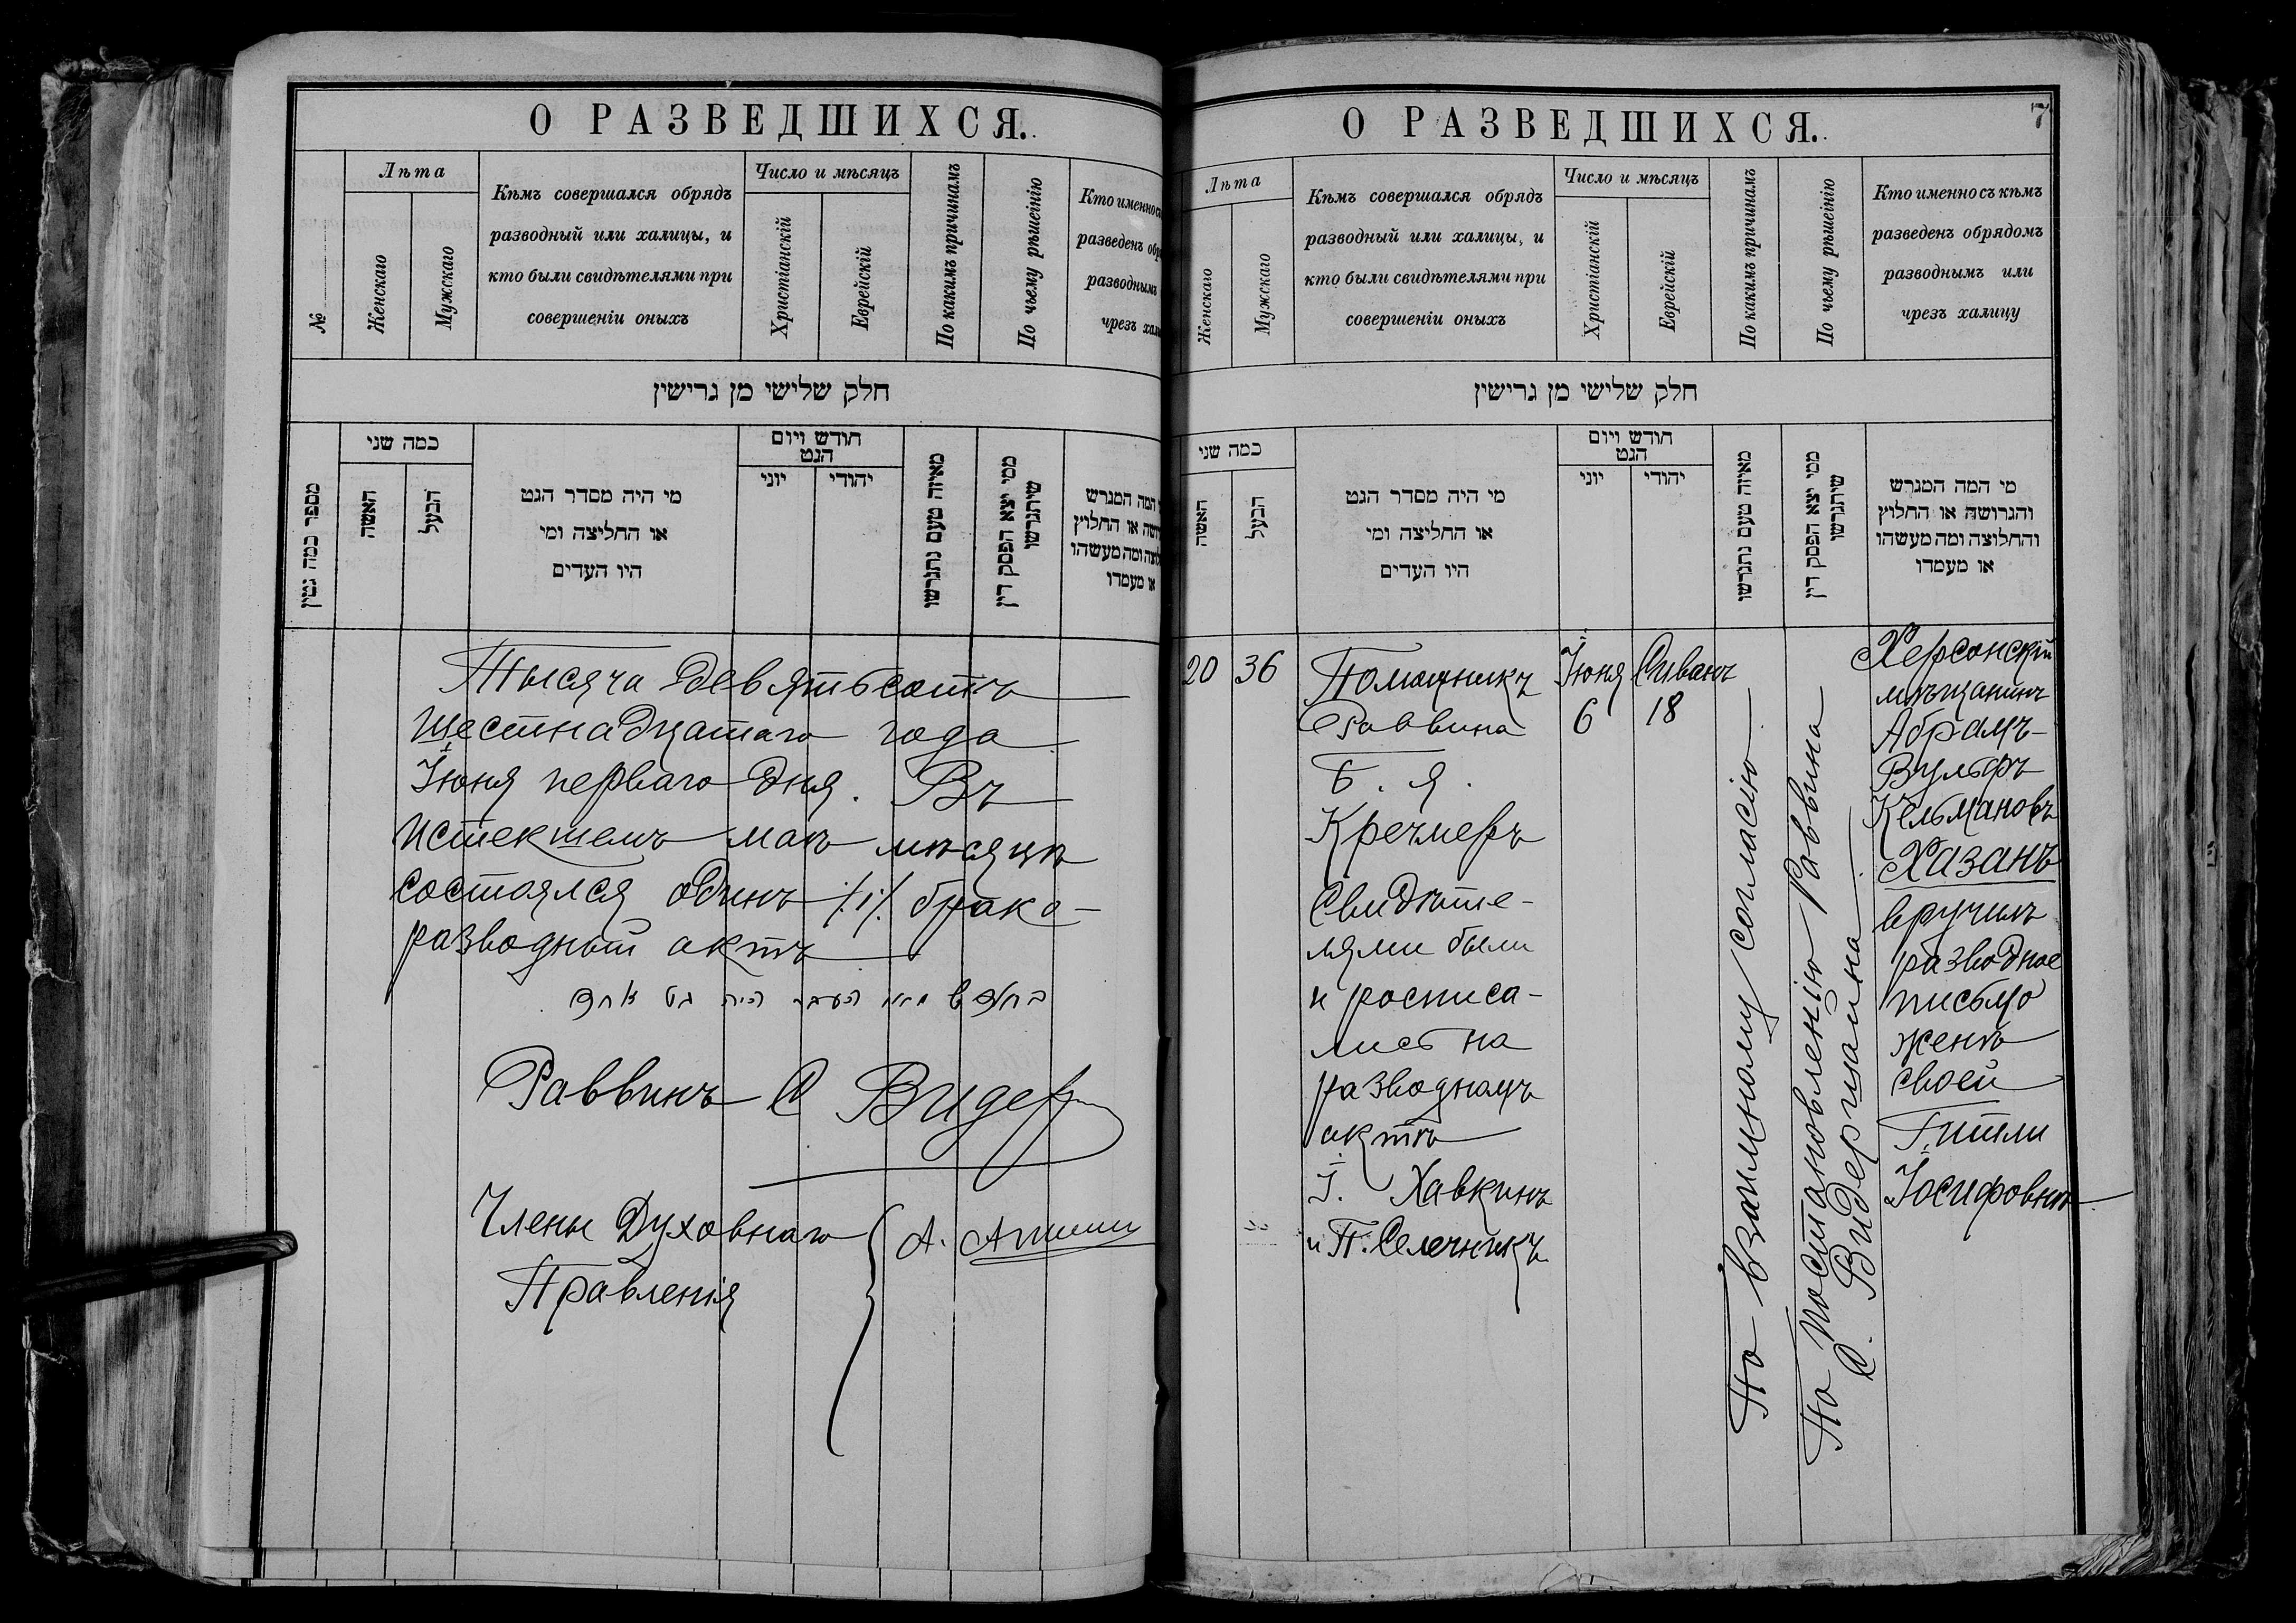 О РАЗВЕДШИХСЯ.
№
Лѣта
Женскаго
Мужскаго
Кѣмъ совершался обрядъ
разводный или халицы, и
кто были свидѣтелями при
совершеніи оныхъ
Число и мѣсяцъ
Христіанскій
Еврейскій
По какимъ причинамъ
По чьему рѣшеінію
Кто именно
разведенъ
разводнымъ
чрезъ
חלק שלישי מן גרישין
מספר כמה גטין
כמה שני
האשה
הבעל
מי היה מסדר הגט
או החליצה ומי
היו העדים
חודש ויום
הגט
יוני
יהודי
מאיזה טעם נתגרשו
ממי יצא הפסק דין
שיתגרשו
המה המגרש
או החלוץ
ומה מעשהו
או מעמדו
Тысяча девятьсотъ
шестнадцатаго года
Іюня перваго дня. Въ
истекшемъ маѣ мѣсяцѣ
состоялся одинъ /1/ брако-
разводный актъ
העבר היה גט אחד
Раввинъ С Видер
Члены Духовнаго
Правленія
А.
О РАЗВЕДШИХСЯ.
7
Лѣта
Женскаго
Мужскаго
Кѣмъ совершался обрядъ
разводный или халицы, и
кто были свидѣтелями при
совершеніи оныхъ
Число и мѣсяцъ
Христіанскій
Еврейскій
По какимъ причинамъ
По чьему рѣшеінію
Кто именно съ кѣмъ
разведенъ обрядомъ
разводнымъ или
чрезъ халицу
חלק שלישי מן גרישין
כמה שני
האשה
הבעל
מי היה מסדר הגט
או החליצה ומי
היו העדים
חודש ויום
הגט
יוני
יהודי
מאיזה טעם נתגרשו
ממי יצא הפסק דין
שיתגרשו
מי המה המגרש
והגרושה או החלוץ
והחלוצה ומה מעשהו
או מעמדו
20
36
Помощникъ
Раввина
Б. Я.
Кречмеръ
Свидѣте-
лями были
и росписа-
лись на
разводномъ
актѣ
І. Хавкинъ
и П. Селечникъ
Іюня
6
Сиванъ
18
По взаимному согласію
По постановленію Раввина
С. Видергшайна
Херсонскій
мѣщанинъ
Абрамъ-
Вульфъ
Кельмановъ
Хазанъ
вручилъ
разводное
письмо
женѣ
своей
Гитли
Іосифовнѣ